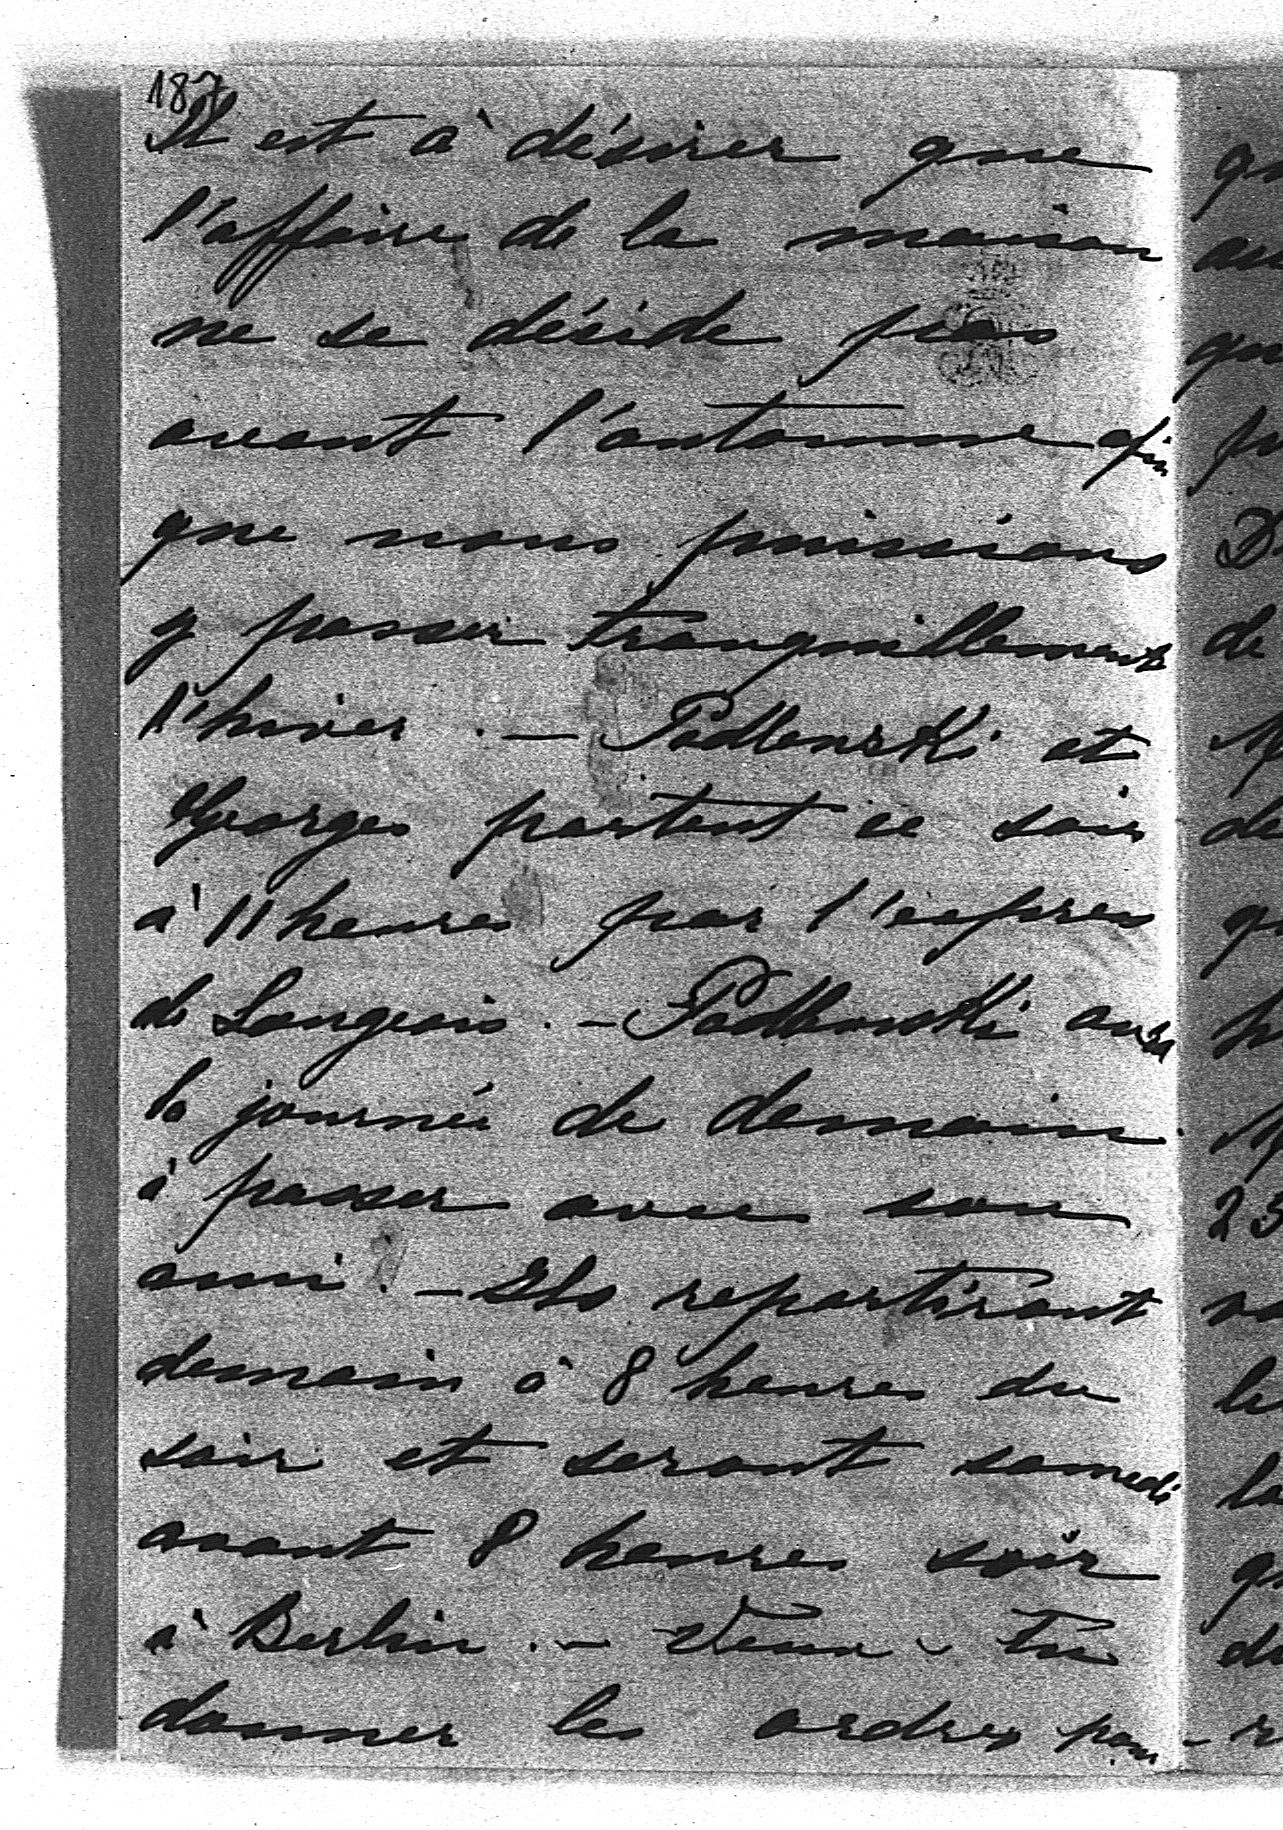 187
Il est à désirer que
l'affaire de la maison
ne se décide pas
avant l'automne afin
que nous puissions
y passer tranquillement
l'hiver. — Podbonski et
Georges partent ce soir
à 11 heures par l'express
de Langeais. — Podbonski aura
la journée de demain
à passer avec son
ami. — Ils repartiront
demain à 8 heures du
soir et seront samedi
avant 8 heures soir
à Berlin. — Veux-tu
donner les ordres pour